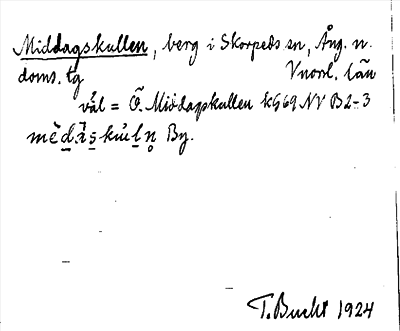 Middagskullen, berg i Skorpeds sn, Ång. n.
doms. tg Vnorrl. län
väl = Ö. Middagskullen kG69 NV B2-3
mèdạskulṇ By.
T. Bucht 1924